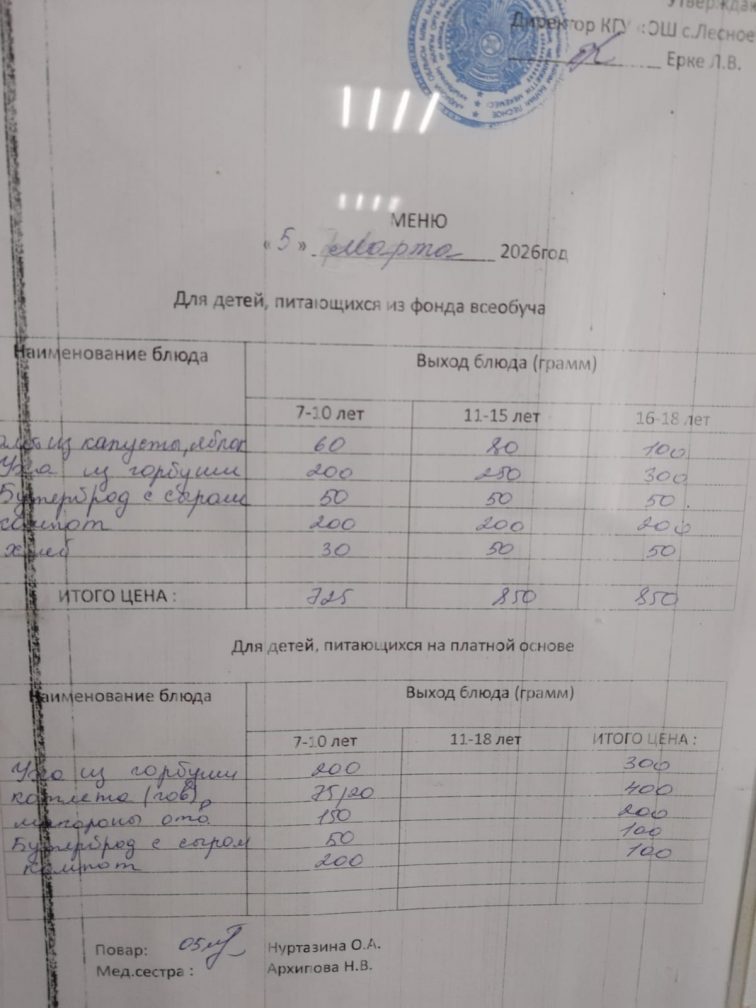 Утвержда
Директор КГУ «ОШ с.Лесное
Ерке Л.В.
МЕНЮ
« 5 » марта 2026год
Для детей, питающихся из фонда всеобуча
Наименование блюда Выход блюда (грамм)
7-10 лет 11-15 лет 16-18 лет
из капусты, яблок 60 80 100
Уха из горбуши 200 250 300
Бутерброд с сыром 50 50 50
компот 200 200 200
хлеб 30 50 50
ИТОГО ЦЕНА : 725 850 850
Для детей, питающихся на платной основе
Наименование блюда Выход блюда (грамм)
7-10 лет 11-18 лет ИТОГО ЦЕНА :
Уха из горбуши 200 300
котлета (гов) 75/20 400
макароны отв. 150 200
Бутерброд с сыром 50 100
компот 200 100
Повар: Нуртазина О.А.
Мед.сестра : Архипова Н.В.